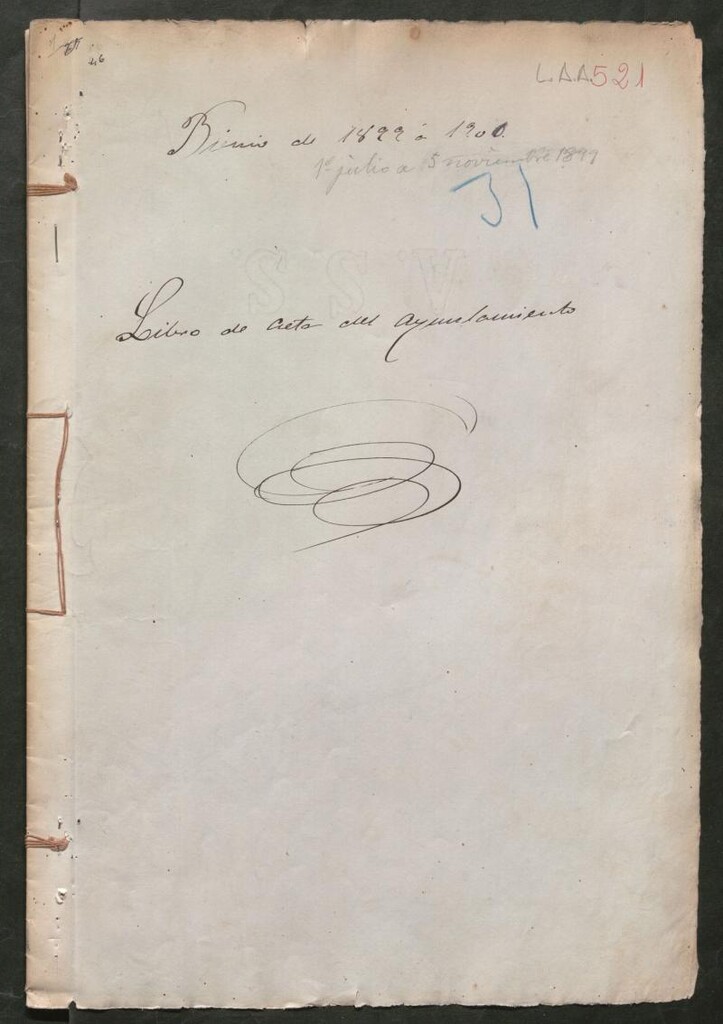 46
L.A.A 521
Bienio de 1899 á 1900
1º julio a 5 noviembre 1899
31
Libro de acta del Ayuntamiento